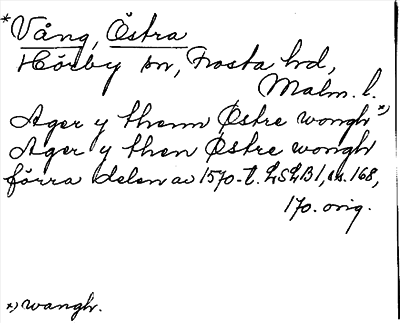 *Vång, Östra
Hörby sn, Frosta hd,
Malm. l.
Ager y thenn Østre wongh *)
Ager y then Østre wongh
förra delen av 1570-t. LSLB 1, s. 168,
170. orig.
*) wangh.